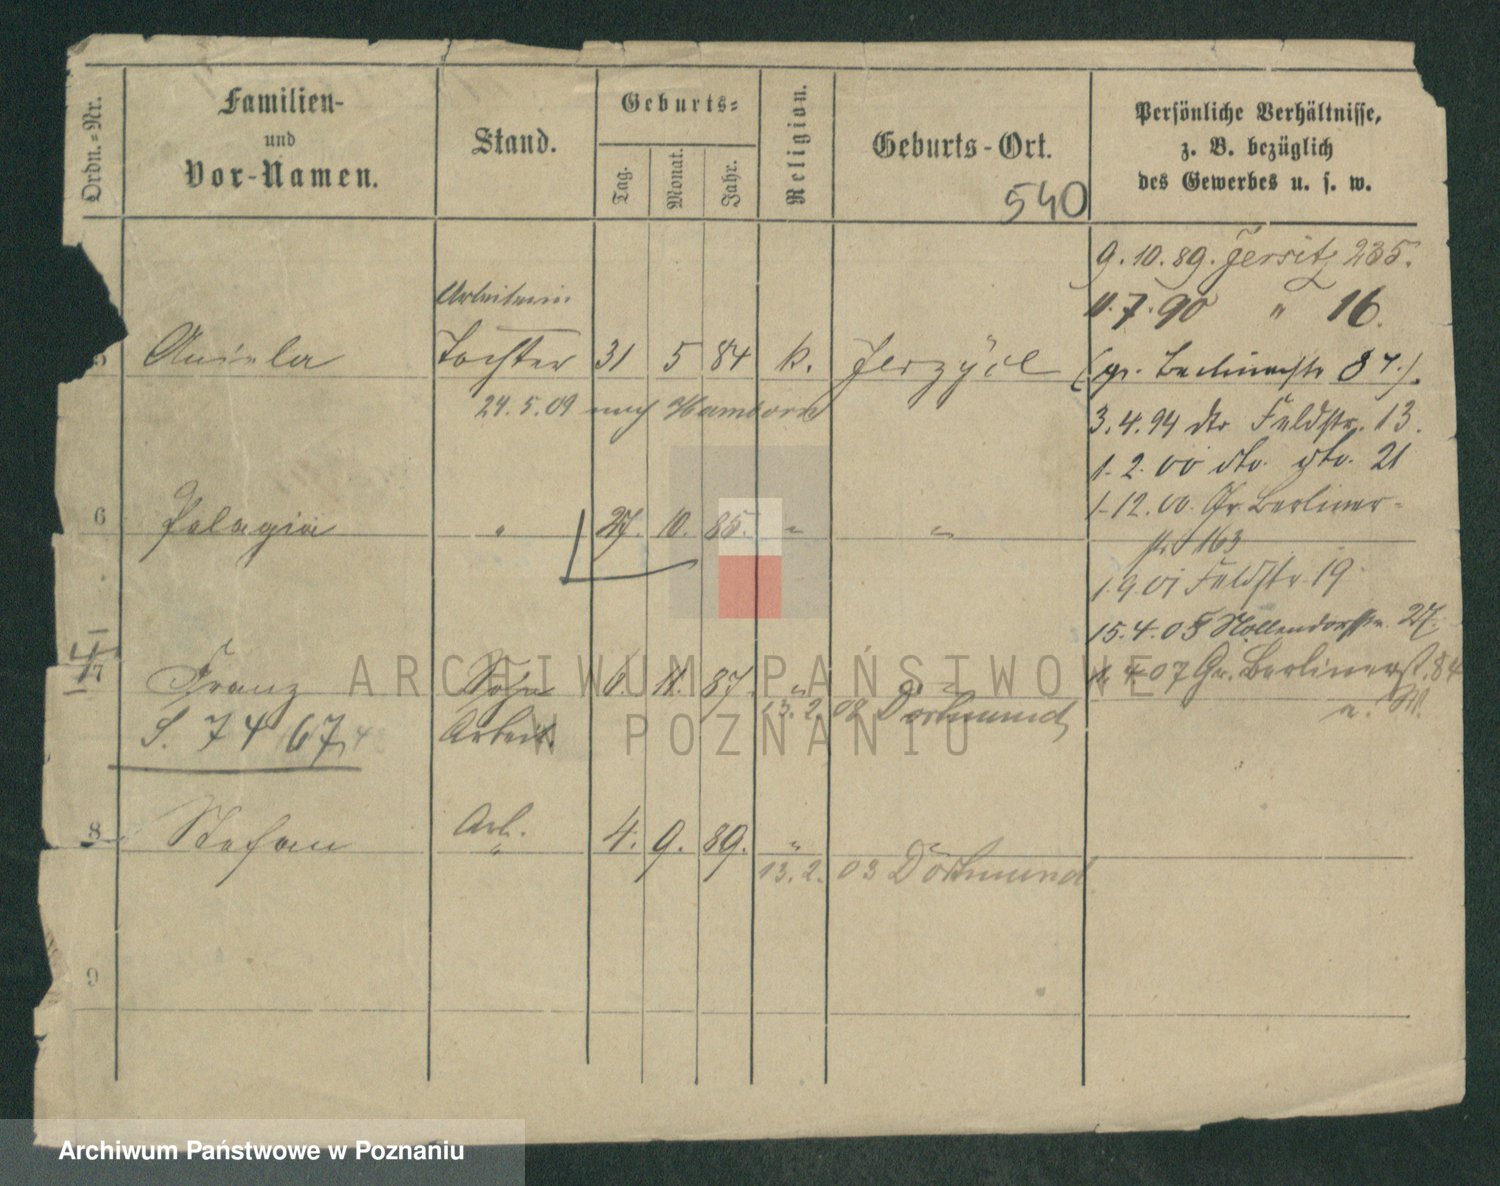 Ordn.=Nr.
Familien-
und
Vor-Namen.
Stand.
Geburts=
Tag.
Monat.
Jahr.
Religion.
Geburts-Ort.
540
Persönliche Verhältnisse,
z. B. bezüglich
des Gewerbes u. s. w.
9.10.89. Jersitz 235.
11.7.90 " 16.
Arbeiterin
5 Aniela Tochter 31 5 84 k. Jerzyce
(gr. Berlinerstr 87.).
24.5.09 nach Hamborn
3.4.94 dto Feldstr. 13.
1.2.00 dto. dto. 21
1.12.00. Gr. Berliner-
6 Pelagia " 27. 10. 85. " "
str. 163
1.9.01 Feldstr. 19
15.4.05 Nollendorfstr. 27.
7 Franz Sohn 6. 11. 87 " "
1.4.07 Gr. Berlinerst. 84
13.2.08 Dortmund
S. 7467 Arbeit.
8 Stefan Arb. " 4. 9. 89. " "
13.2.03 Dortmund.
9
ARCHIWUM PAŃSTWOWE
W POZNANIU
Archiwum Państwowe w Poznaniu